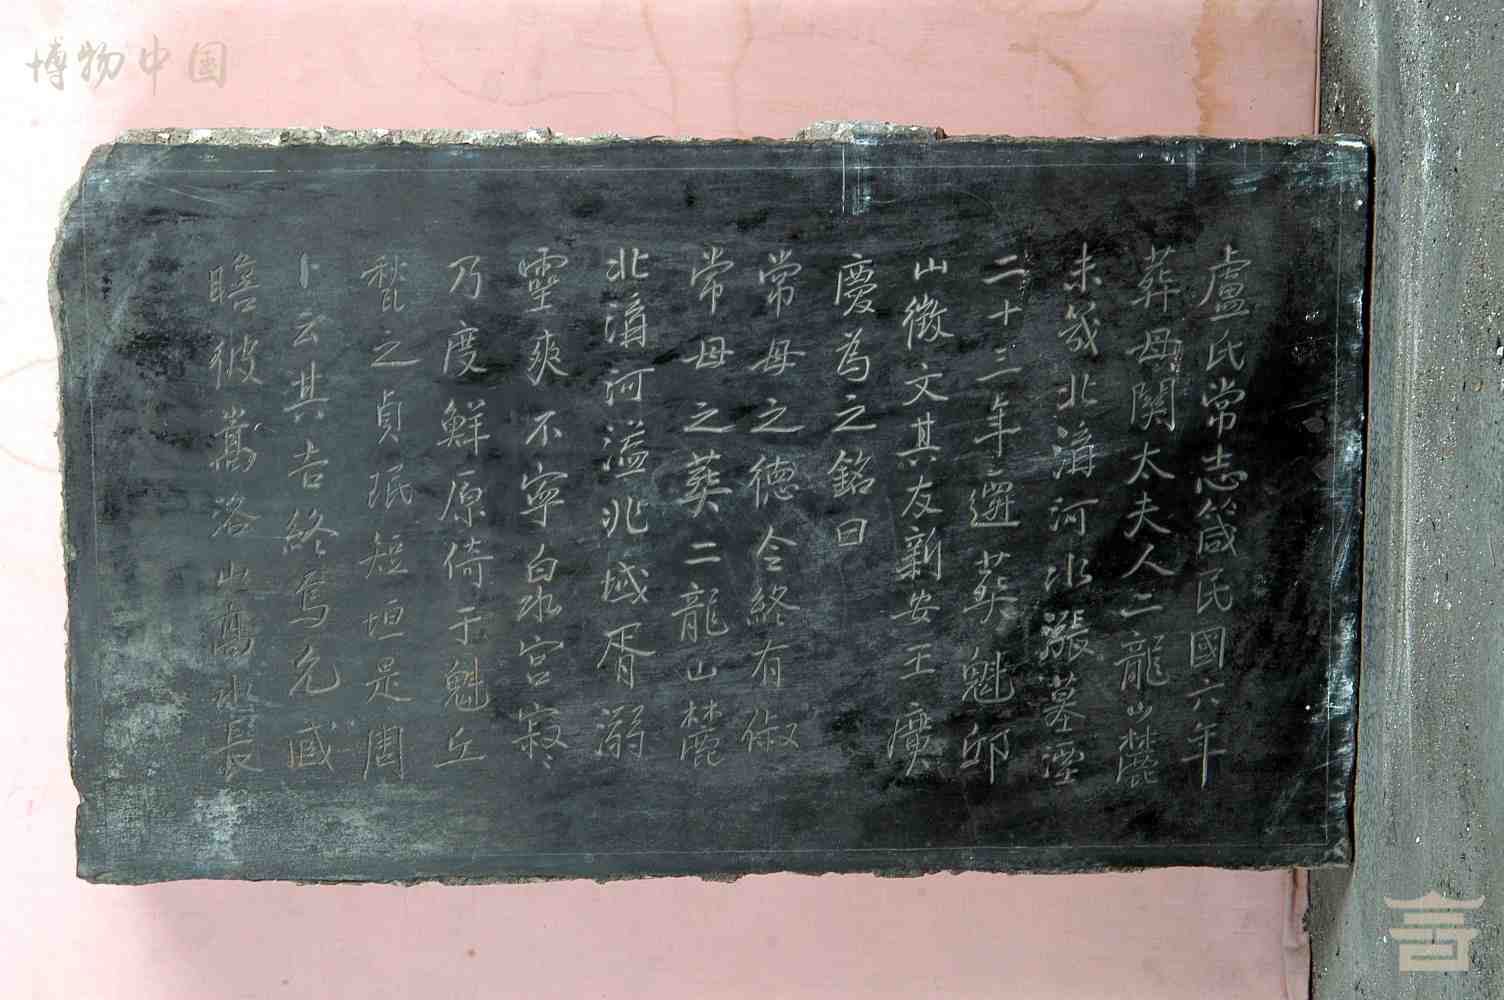 博物中国
盧氏常志箴民國六年
葬母關太夫人二龍山麓
未幾北淯河水漲墓湮
二十三年遷葬魁邱
山徵文其友新安王廣
慶為之銘曰
常母之德令終有俶
常母之葬二龍山麓
北淯河溢兆域胥溺
靈爽不寧白水宮寂
乃度鮮原倚于魁丘
甃之貞珉短垣是周
卜云其吉終焉允臧
瞻彼嵩洛山高水長